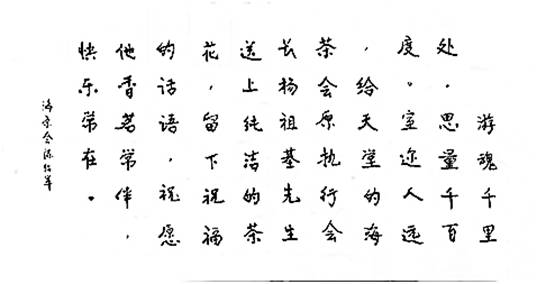 游魂千里
处.思量千百
度。室迩人远
，给天堂的海
茶会原执行会
长杨祖基先生
送上纯洁的茶
花，留下祝福
的话语，祝愿
他香茗常伴，
快乐常在。
海茶会陈绍